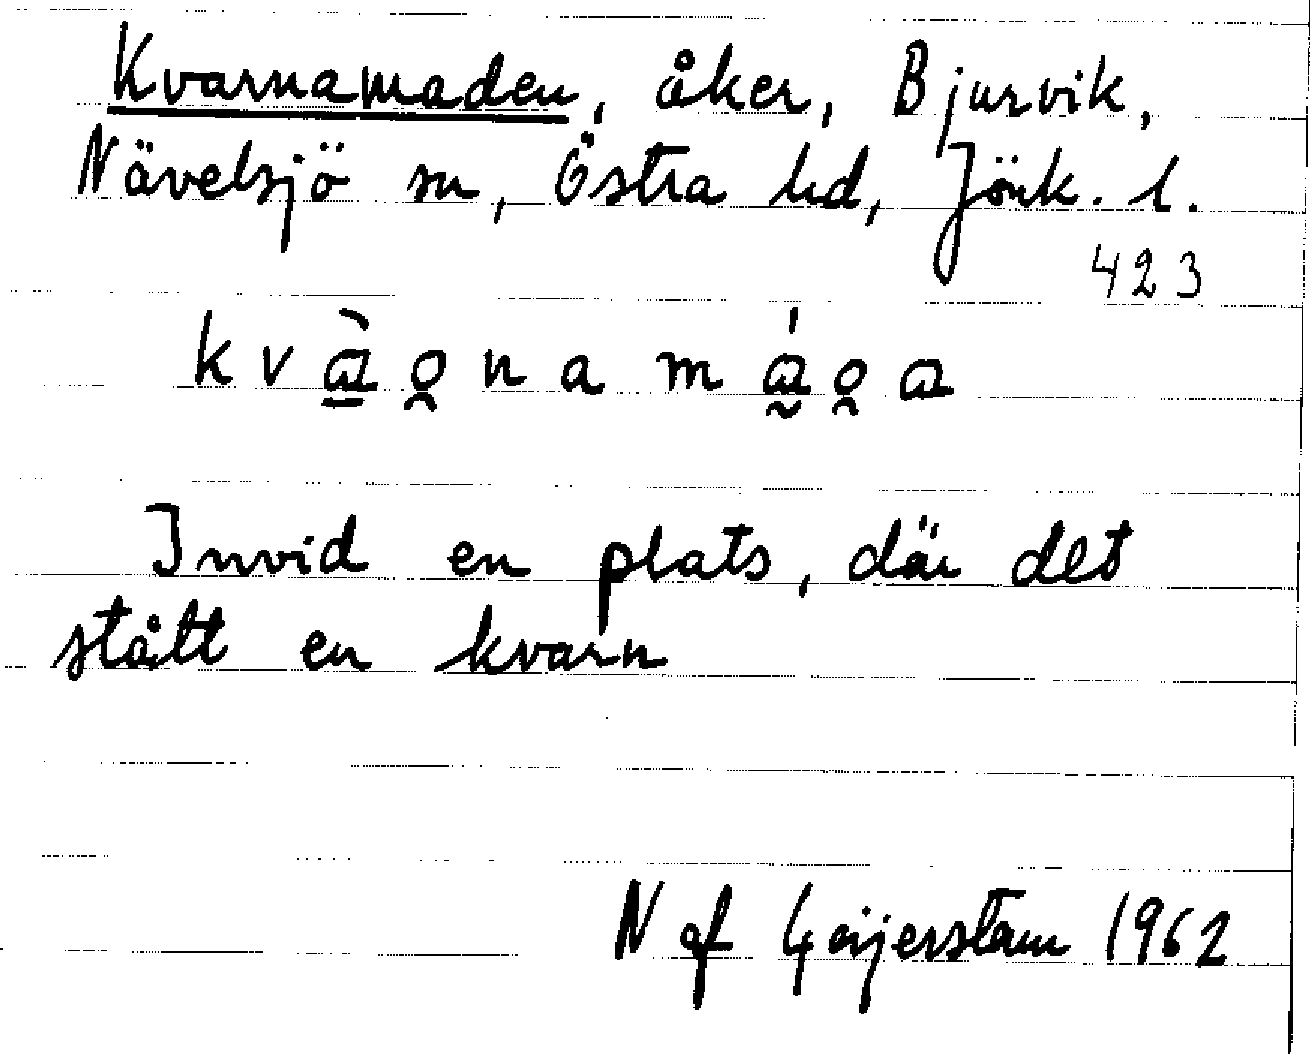 Kvarnamaden, åker, Bjurvik,
Nävelsjö sn, Östra hd, Jönk. l.
423
kvɑ̀o̯namɑ́o̯ɑ
Invid en plats, där det
stått en kvarn
N af Geijerstam 1962